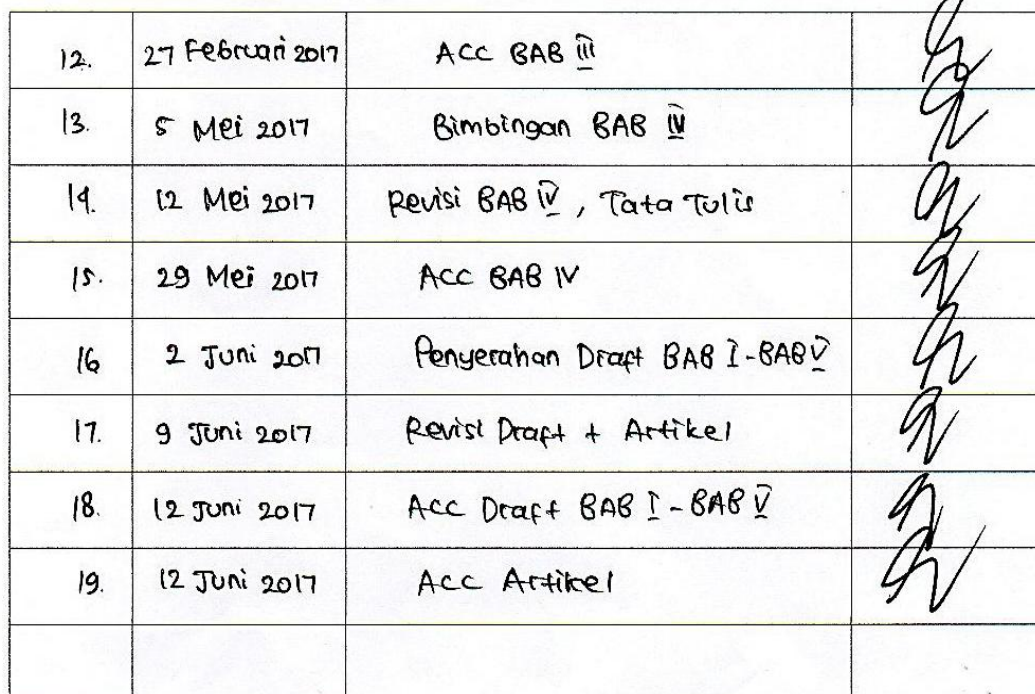 12. 27 Februari 2017 ACC BAB III
13. 5 Mei 2017 Bimbingan BAB IV
14. 12 Mei 2017 Revisi BAB IV, Tata Tulis
15. 29 Mei 2017 ACC BAB IV
16 2 Juni 2017 Penyerahan Draft BAB I-BAB V
17. 9 Juni 2017 Revisi Draft + Artikel
18. 12 Juni 2017 Acc Draft BAB I - BAB V
19. 12 Juni 2017 ACC Artikel